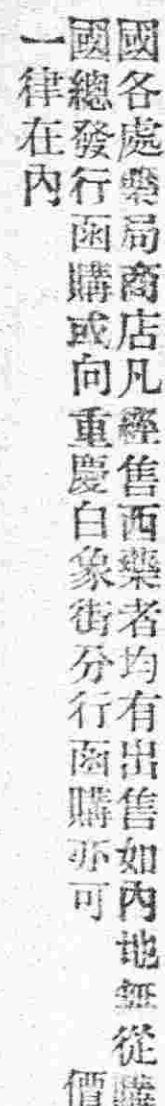 國各處藥局商店凡經售西藥者均有出售如內地無從購
國總發行函購或向重慶白象街分行函購亦可 價
一律在內